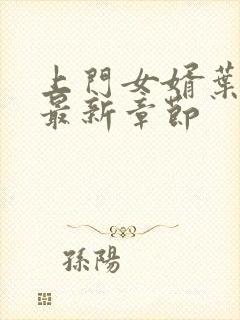 上門女婿葉
最新章節
孫陽